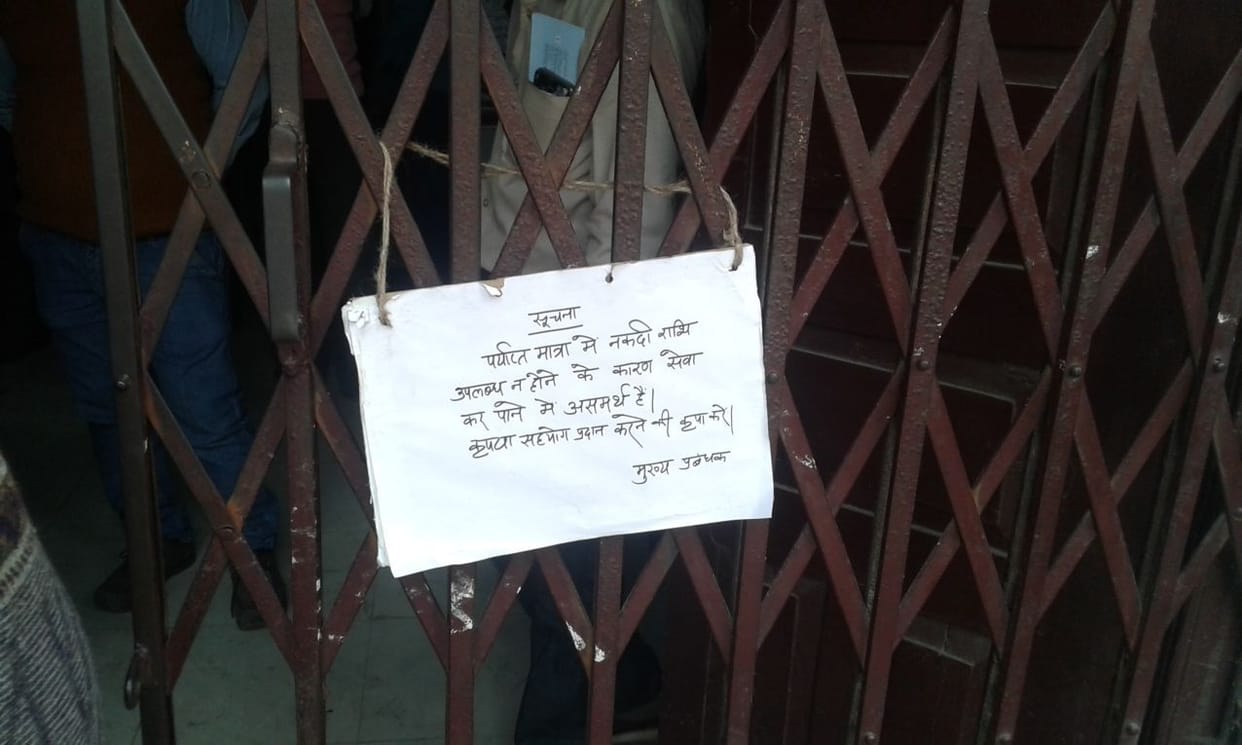 सूचना
पर्याप्त मात्रा में नकदी राशि
उपलब्ध न होने के कारण सेवा
कर पाने में असमर्थ हैं।
कृपया सहयोग प्रदान करने की कृपा करें।
मुख्य प्रबंधक